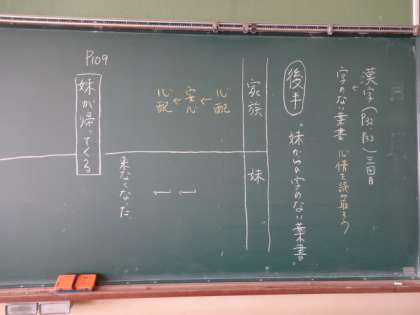 漢字(P32 P33)三回目
字のない葉書 心情を読み取ろう
後半 "妹からの字のない葉書"
家族 妹
心配←安心←心配
来なくなった
妹が帰ってくる
P109